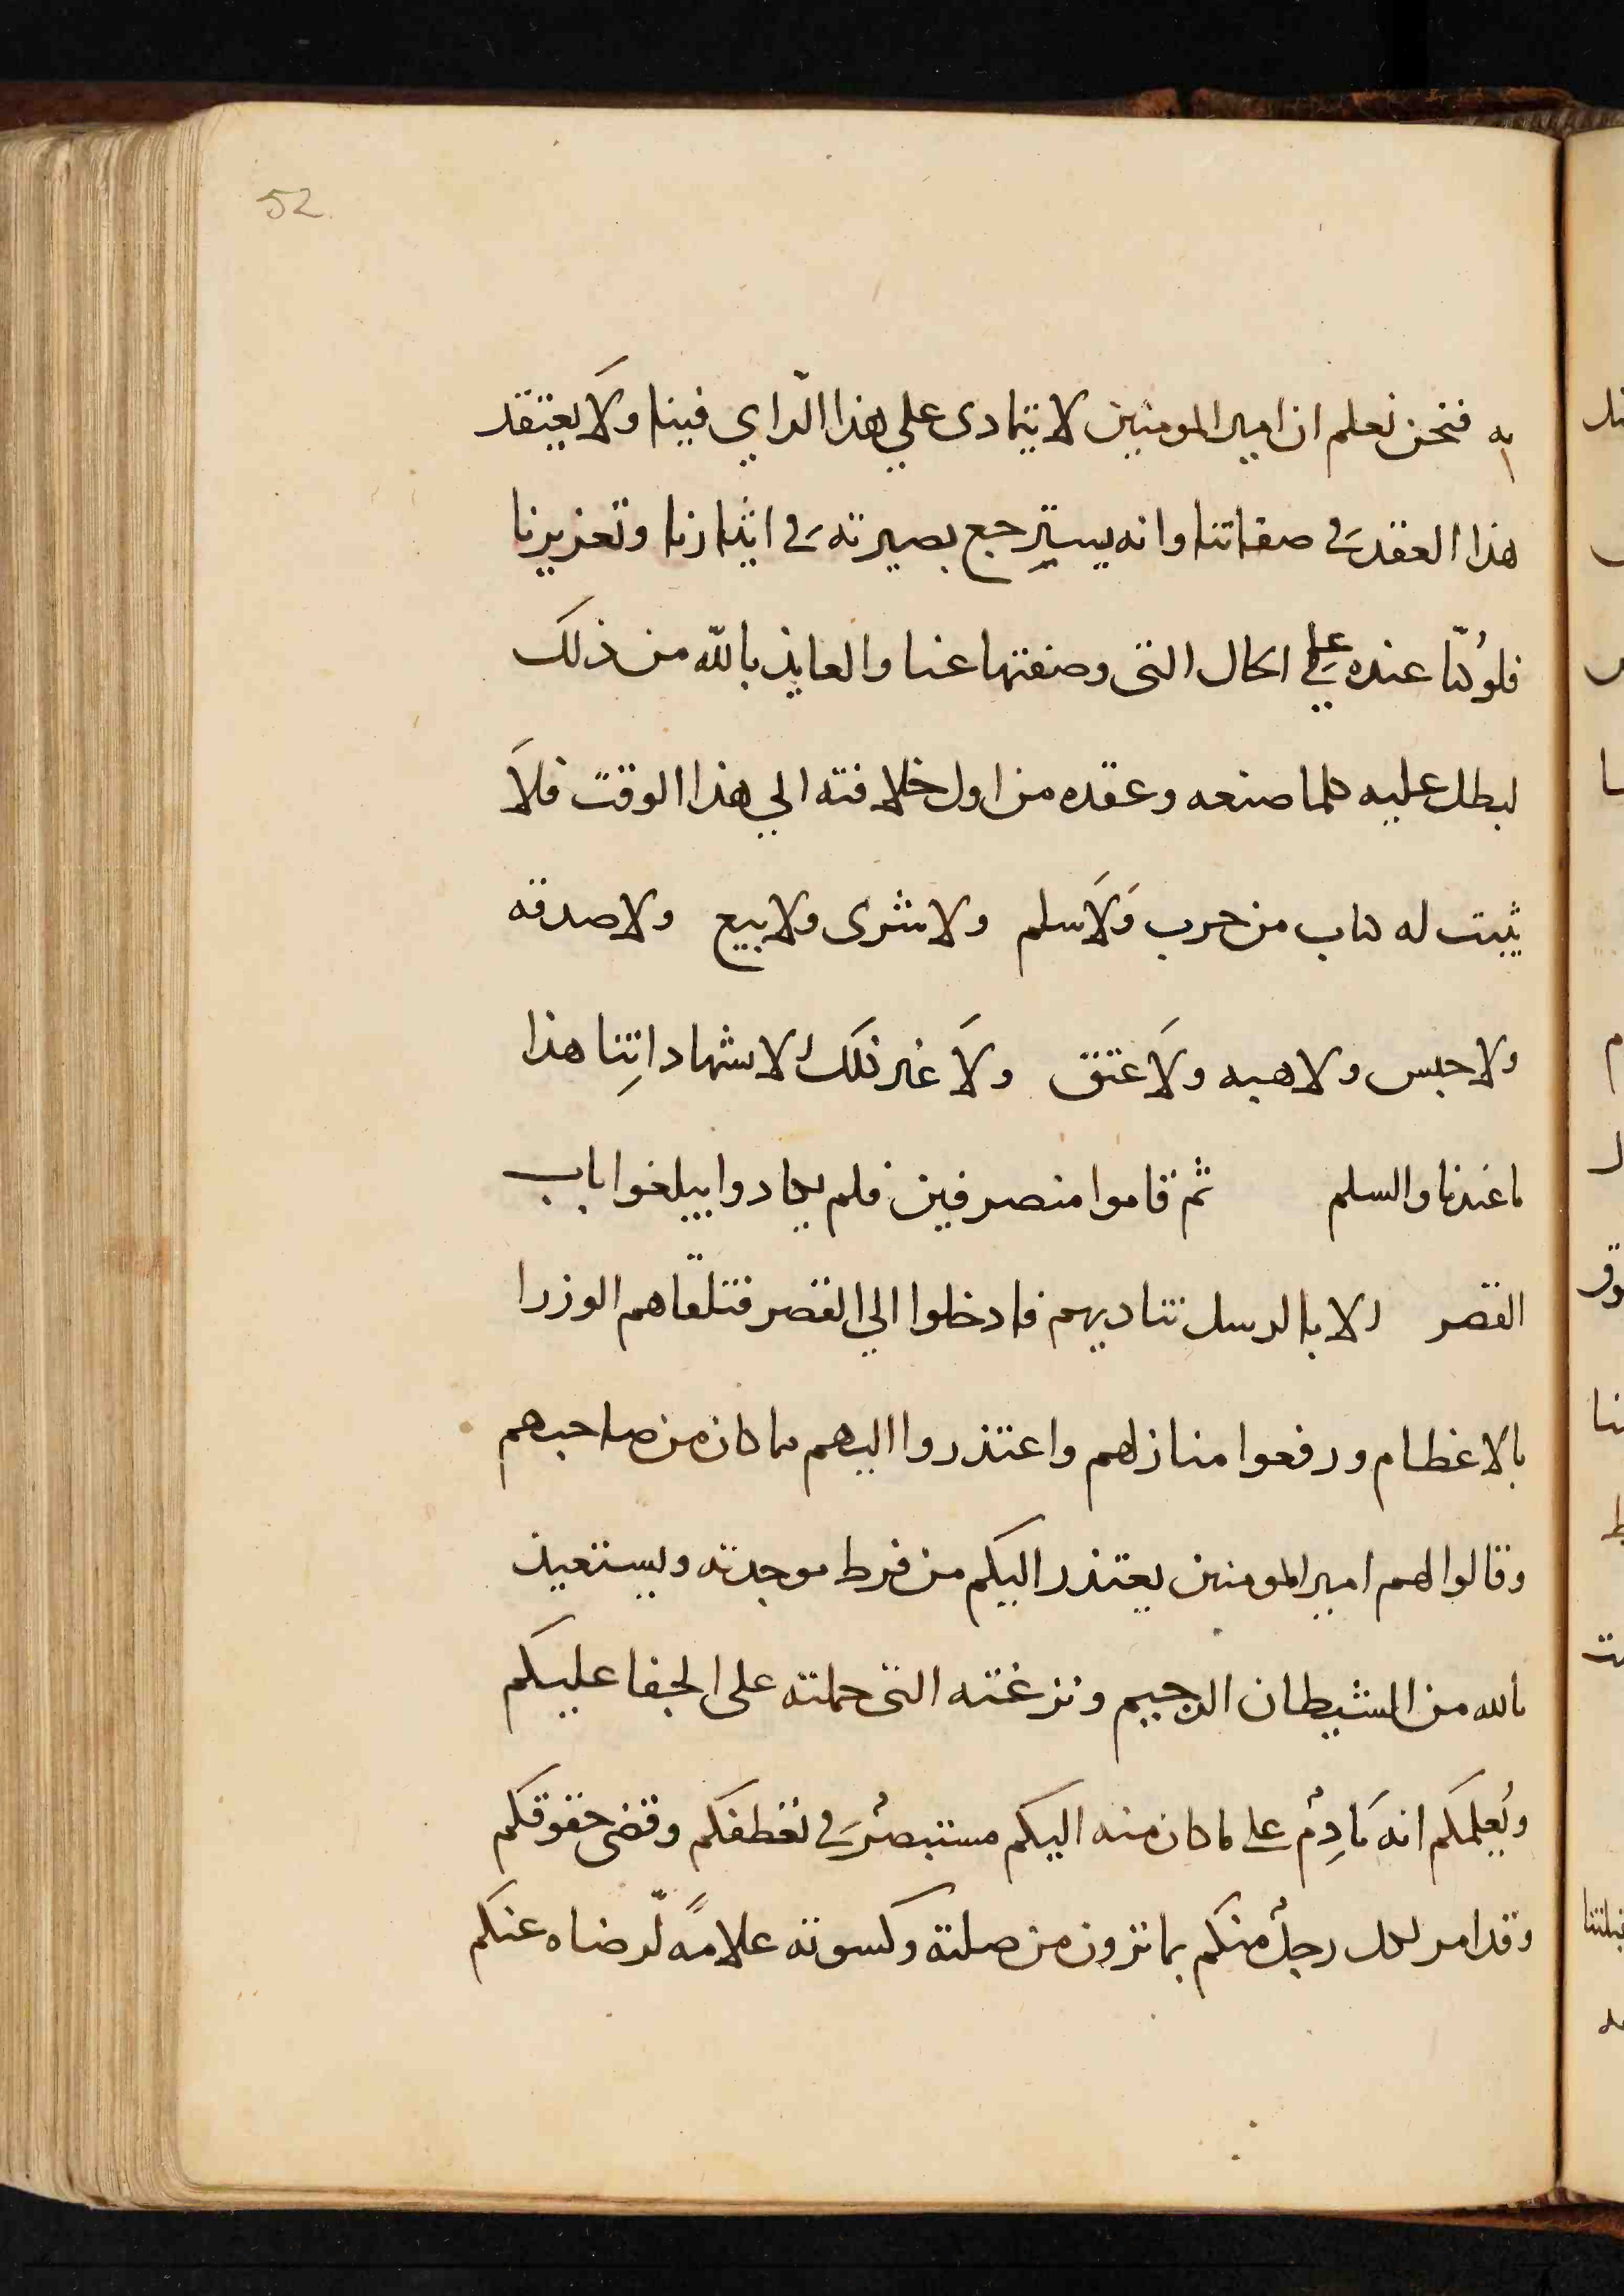 52
به فنحن نعلم ان امير المومنين لا يتمادى علي هذا الراي فينا ولا يعتقد
هذا العقد في صفاتنا وانه يسترجع بصيرته في ايثارنا وتعزيزنا
فلو كنّا عنده علي الحال التي وصفتها عنا والعايذ بالله من ذلك
لبطل عليه كلما صنعه وعقده من اول خلافته الي هذا الوقت فلا
يثبت له كتاب من حرب ولا سلم ولا شرى ولا بيع ولا صدقه
ولا حبس ولا هبه ولا عتق ولا غير ذلك الا بشهاداتِنا هذا
ما عندنا والسلم ثم قاموا منصرفين فلم يكادوا يبلغوا باب
القصر الا بالرسل تناديهم فادخلوا الي القصر فتلقاهم الوزرا
بالاعظام ورفعوا منازلهم واعتذروا اليهم مما كان من صاحبهم
وقالوا لهم امير المومنين يعتذر اليكم من فرط موجدته ويستعيذ
بالله من الشيطان الرجيم ونزغته التي حملته على الجفا عليكم
ويُعلمكم انه نادِم على ما كان منه اليكم مستبصر في تعطفكم وقضى حقوقكم
وقد امر لكل رجل منكم بما ترون من صلته وكسوته علامةً لّرضاه عنكم